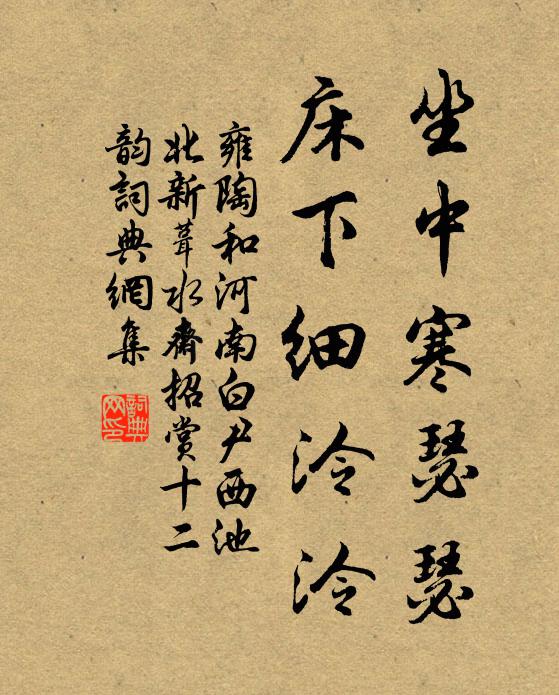 坐中寒瑟瑟
床下细泠泠
雍陶和河南白尹西池
北新葺水斋招赏十二
韵詞典網集
詞典網印